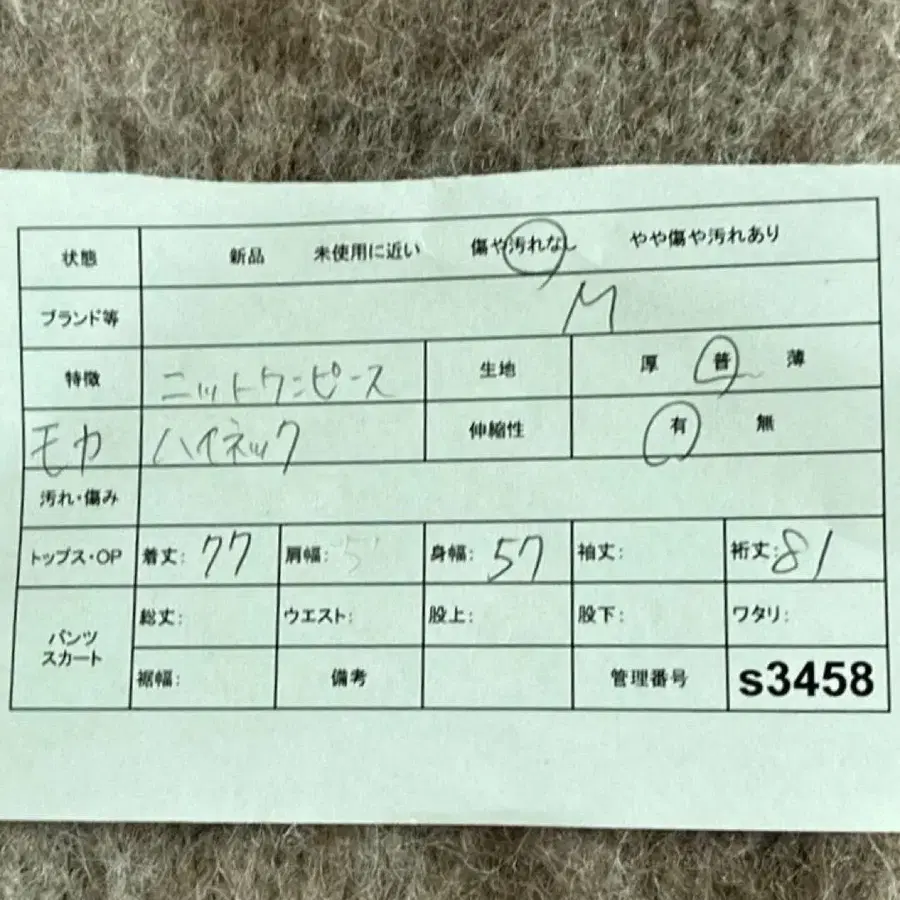 状態 新品 未使用に近い 傷や汚れなし やや傷や汚れあり
ブランド等 M
特徴 ニットワンピース 生地 厚 普 薄
モカ ハイネック 伸縮性 有 無
汚れ・傷み
トップス・OP 着丈: 77 肩幅: 身幅: 57 袖丈: 裄丈: 81
パンツ スカート 総丈: ウエスト: 股上: 股下: ワタリ:
裾幅: 備考 管理番号 s3458